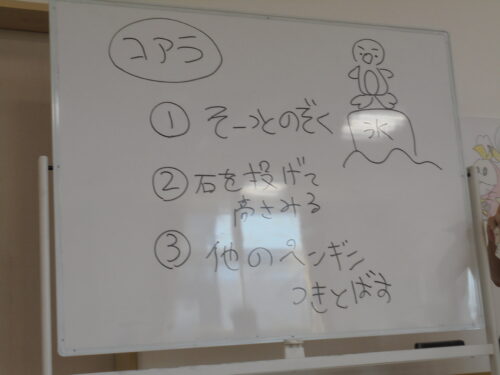 コアラ
① そーっとのぞく
氷
② 石を投げて
高さみる
③ 他のペンギン
つきとばす